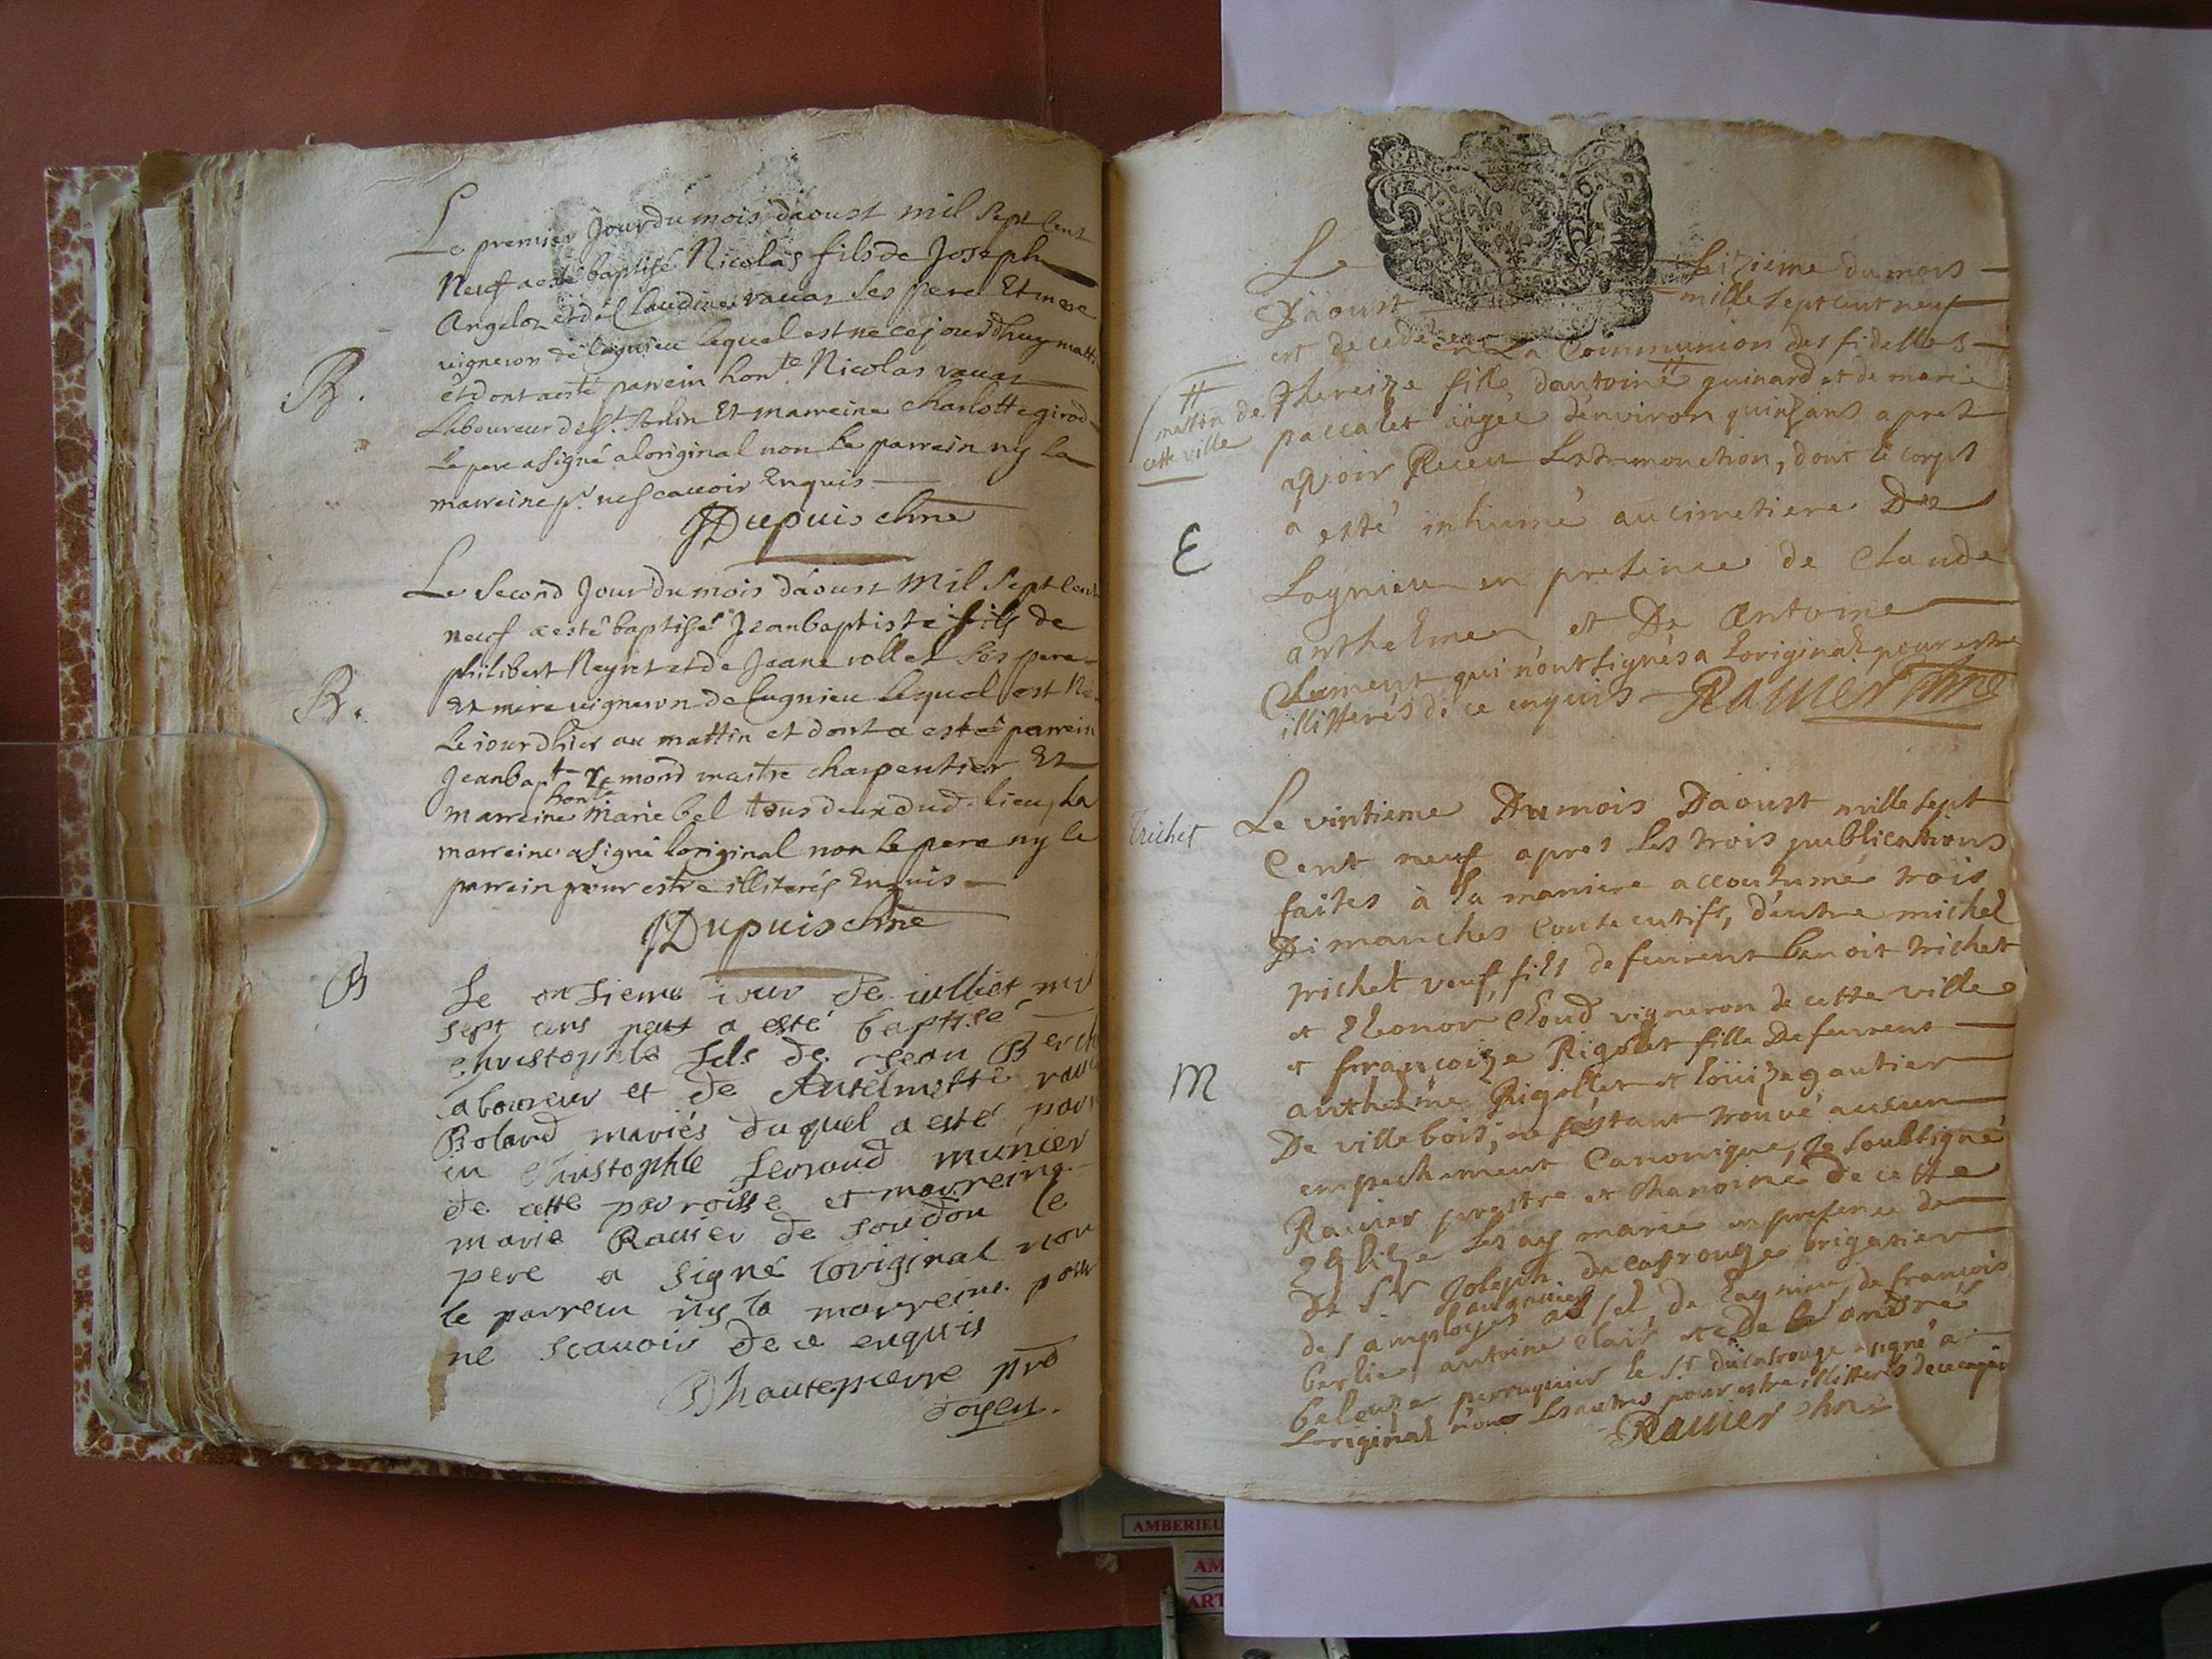 Le premier Jour du mois d'aoust mil Sept Cent
Neuf a esté baptisé Nicolas fils de Joseph
Angelot et de Claudine vauar Ses pere Et mere
vigneron de lagnieu lequel est né cejourdhuy matt.
et dont a esté parrein hon.te Nicolas vauar
Laboureur de St. Sorlin Et marreine charlotte girod
Le pere a signé a loriginal non le parrein ny la
marreine pr. ne scauoir Enquis
JDupuis chne
Le Second Jour du mois d'aoust Mil Sept Cent
neuf a esté baptisé Jean baptiste fils de
philibert Neyret et de Jeane rollet Ses pere
Et mere vigneron de Lagnieu lequel est Né
Le jour dhier au mattin et dont a esté parrein
Jean bapt remond maitre charpentier Et
honte
marreine marie bel tous deux dud. lieu, La
marreine a signé loriginal non le pere ny le
parrein pour estre illiterés Enquis
JDupuis chne
Le onsieme iour de iulliet mil
sept cens neuf a esté baptisé
christophle fils de Jean Berch
laboureur et de Antelmette rau
Bolard mariés duquel a esté parr
in christophle ferroud munier
de cette parroisse et marreine
marie Rauier de soudon le
pere a signé loriginal non
le parrein ny la marreine pour
ne scauoir de ce enquis
Dhautepierre pre
doyen.
B.
B.
B
Le seizieme du mois
D'aoust mille sept cent neuf
est decedé en La Communion des fidelles
Thereize fille d'antoine # guinard et de marie
pacalet âgée d'environ quinz ans apres
avoir Receu L'extremonction, dont le corps
a esté inhumé au cimetiere De
Lagnieu en presence de Claude
anthelme et De Antoine
Clument qui n'ont signés a Loriginal pour estre
illitterés de ce enquis Rauier chne
#
mattin de
cette ville
E
Trichet
Le vintieme Du mois D'aoust mille sept
Cent neuf apres Les trois publications
faites à la maniere accoutumé trois
Dimanches Consecutifs, d'entre michel
trichet veuf, fils de feurent benoit trichet
et Eleonor Cloud vigneron de cette ville
et francoize Rigolet fille De furent
anthelme Rigollet et loüize gautier
De villebois, ne s'estant trouvé aucun
empechement Canonique, Je soubsigné
Rauier prestre et Chanoine de cette
Eglize les ay marié en presence de
De Sr Joseph ducasrouge brigatier
des amployes au sel de lagnieu, de francois
berlie, antoine clair et De andré
belouze perruquier le Sr. ducasrouge a signé a
Loriginal non Les autres pour estre illitterés de ce enquis
Rauier chne
M
AMBERIEU
AM
ART